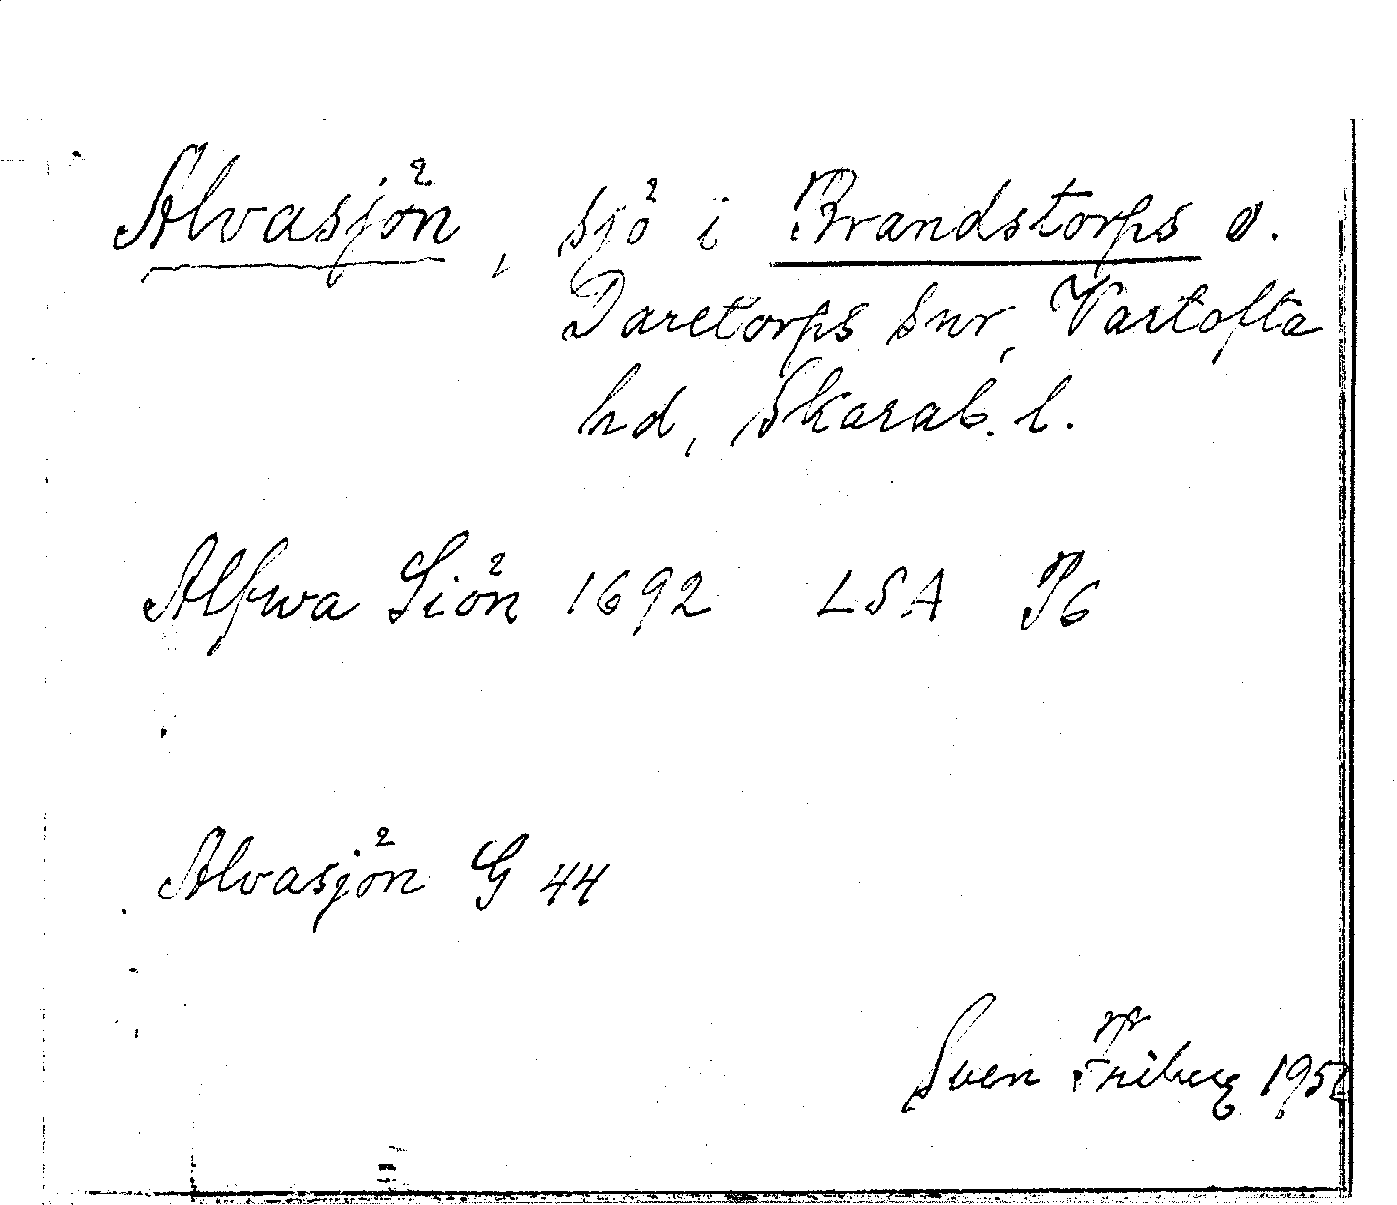 Alvasjön, sjö i Brandstorps o.
Daretorps snr, Vartofta
hd, Skarab. l.
Alfwa Siön 1692 LSA P6
Alvasjön G 44
Sven Friberg